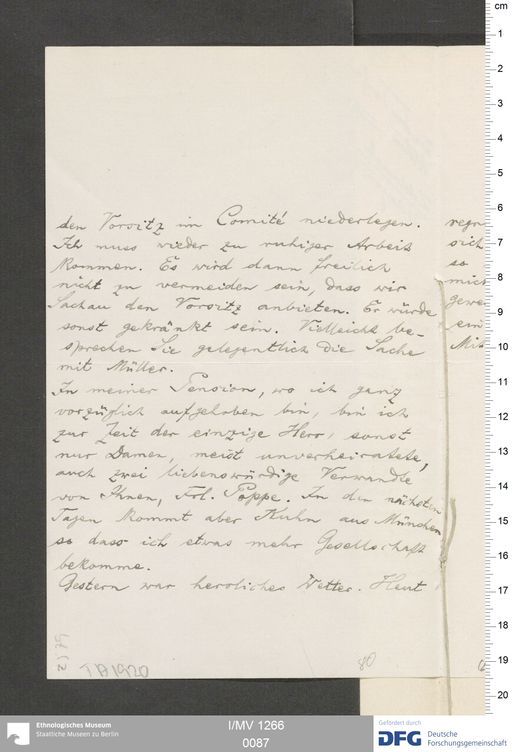 den Vorsitz im Comité niederlegen.
Ich muss wieder zu ruhiger Arbeit
kommen. Es wird dann freilich
nicht zu vermeiden sein, dass wir
Sachau den Vorsitz anbieten. Er würde
sonst gekränkt sein. Vielleicht be-
sprechen Sie gelegentlich die Sache
mit Müller.
In meiner Pension, wo ich ganz
vorzüglich aufgehoben bin, bin ich
zur Zeit der einzige Herr, sonst
nur Damen, meist unverheiratete,
auch zwei liebenswürdige Verwandte
von Ihnen, Frl. Poppe. In den nächsten
Tagen kommt aber Kuhn aus München
so dass ich etwas mehr Gesellschaft
bekomme.
Gestern war herrliches Wetter. Heut
regn
sich
so
mich
gewe
ein
Mit
80
cm
1
2
3
4
5
6
7
8
9
10
11
12
13
14
15
16
17
18
19
20
Ethnologisches Museum
Staatliche Museen zu Berlin
I/MV 1266
0087
Gefördert durch
DFG
Deutsche
Forschungsgemeinschaft